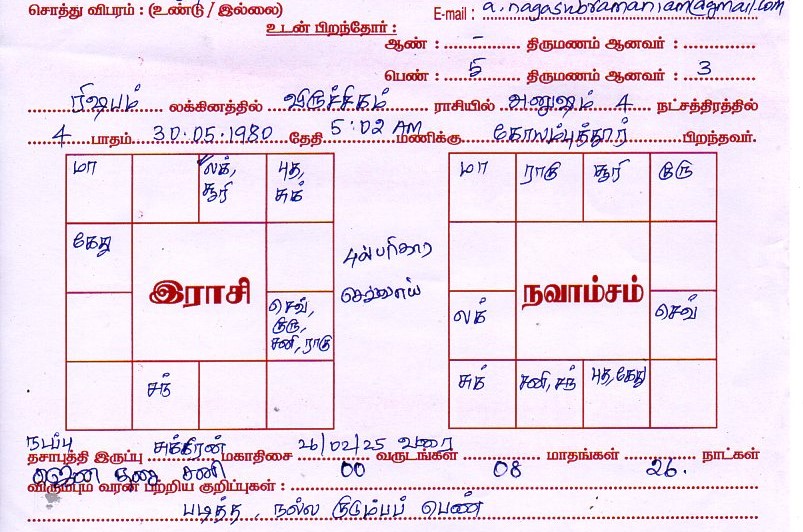 சொத்து விபரம் : (உண்டு / இல்லை) E-mail : a.nagasubramaniam@gmail.com
உடன் பிறந்தோர் :
ஆண் : - திருமணம் ஆனவர் :
பெண் : 5 திருமணம் ஆனவர் : 3
ரிஷபம் லக்கினத்தில் விருச்சிகம் ராசியில் அனுஷம் 4 நட்சத்திரத்தில்
4 பாதம் 30.05.1980 தேதி 5:02 AM மணிக்கு கோயம்புத்தூர் பிறந்தவர்.
மா லக், சூரி புத, சுக்
கேது
இராசி
செவ், குரு, சனி, ராகு
சந்
பரிகார
மா ராகு சூரி குரு
நவாம்சம்
லக் செவ்
சுக் சனி, சந் புத, கேது
நடப்பு
தசாபுத்தி இருப்பு சுக்கிரன் மகாதிசை 26/02/25 வரை வருடங்கள் மாதங்கள் நாட்கள்
சனி 00 08 26.
விரும்பும் வரன் பற்றிய குறிப்புகள் :
படித்த, நல்ல குடும்பப் பெண்